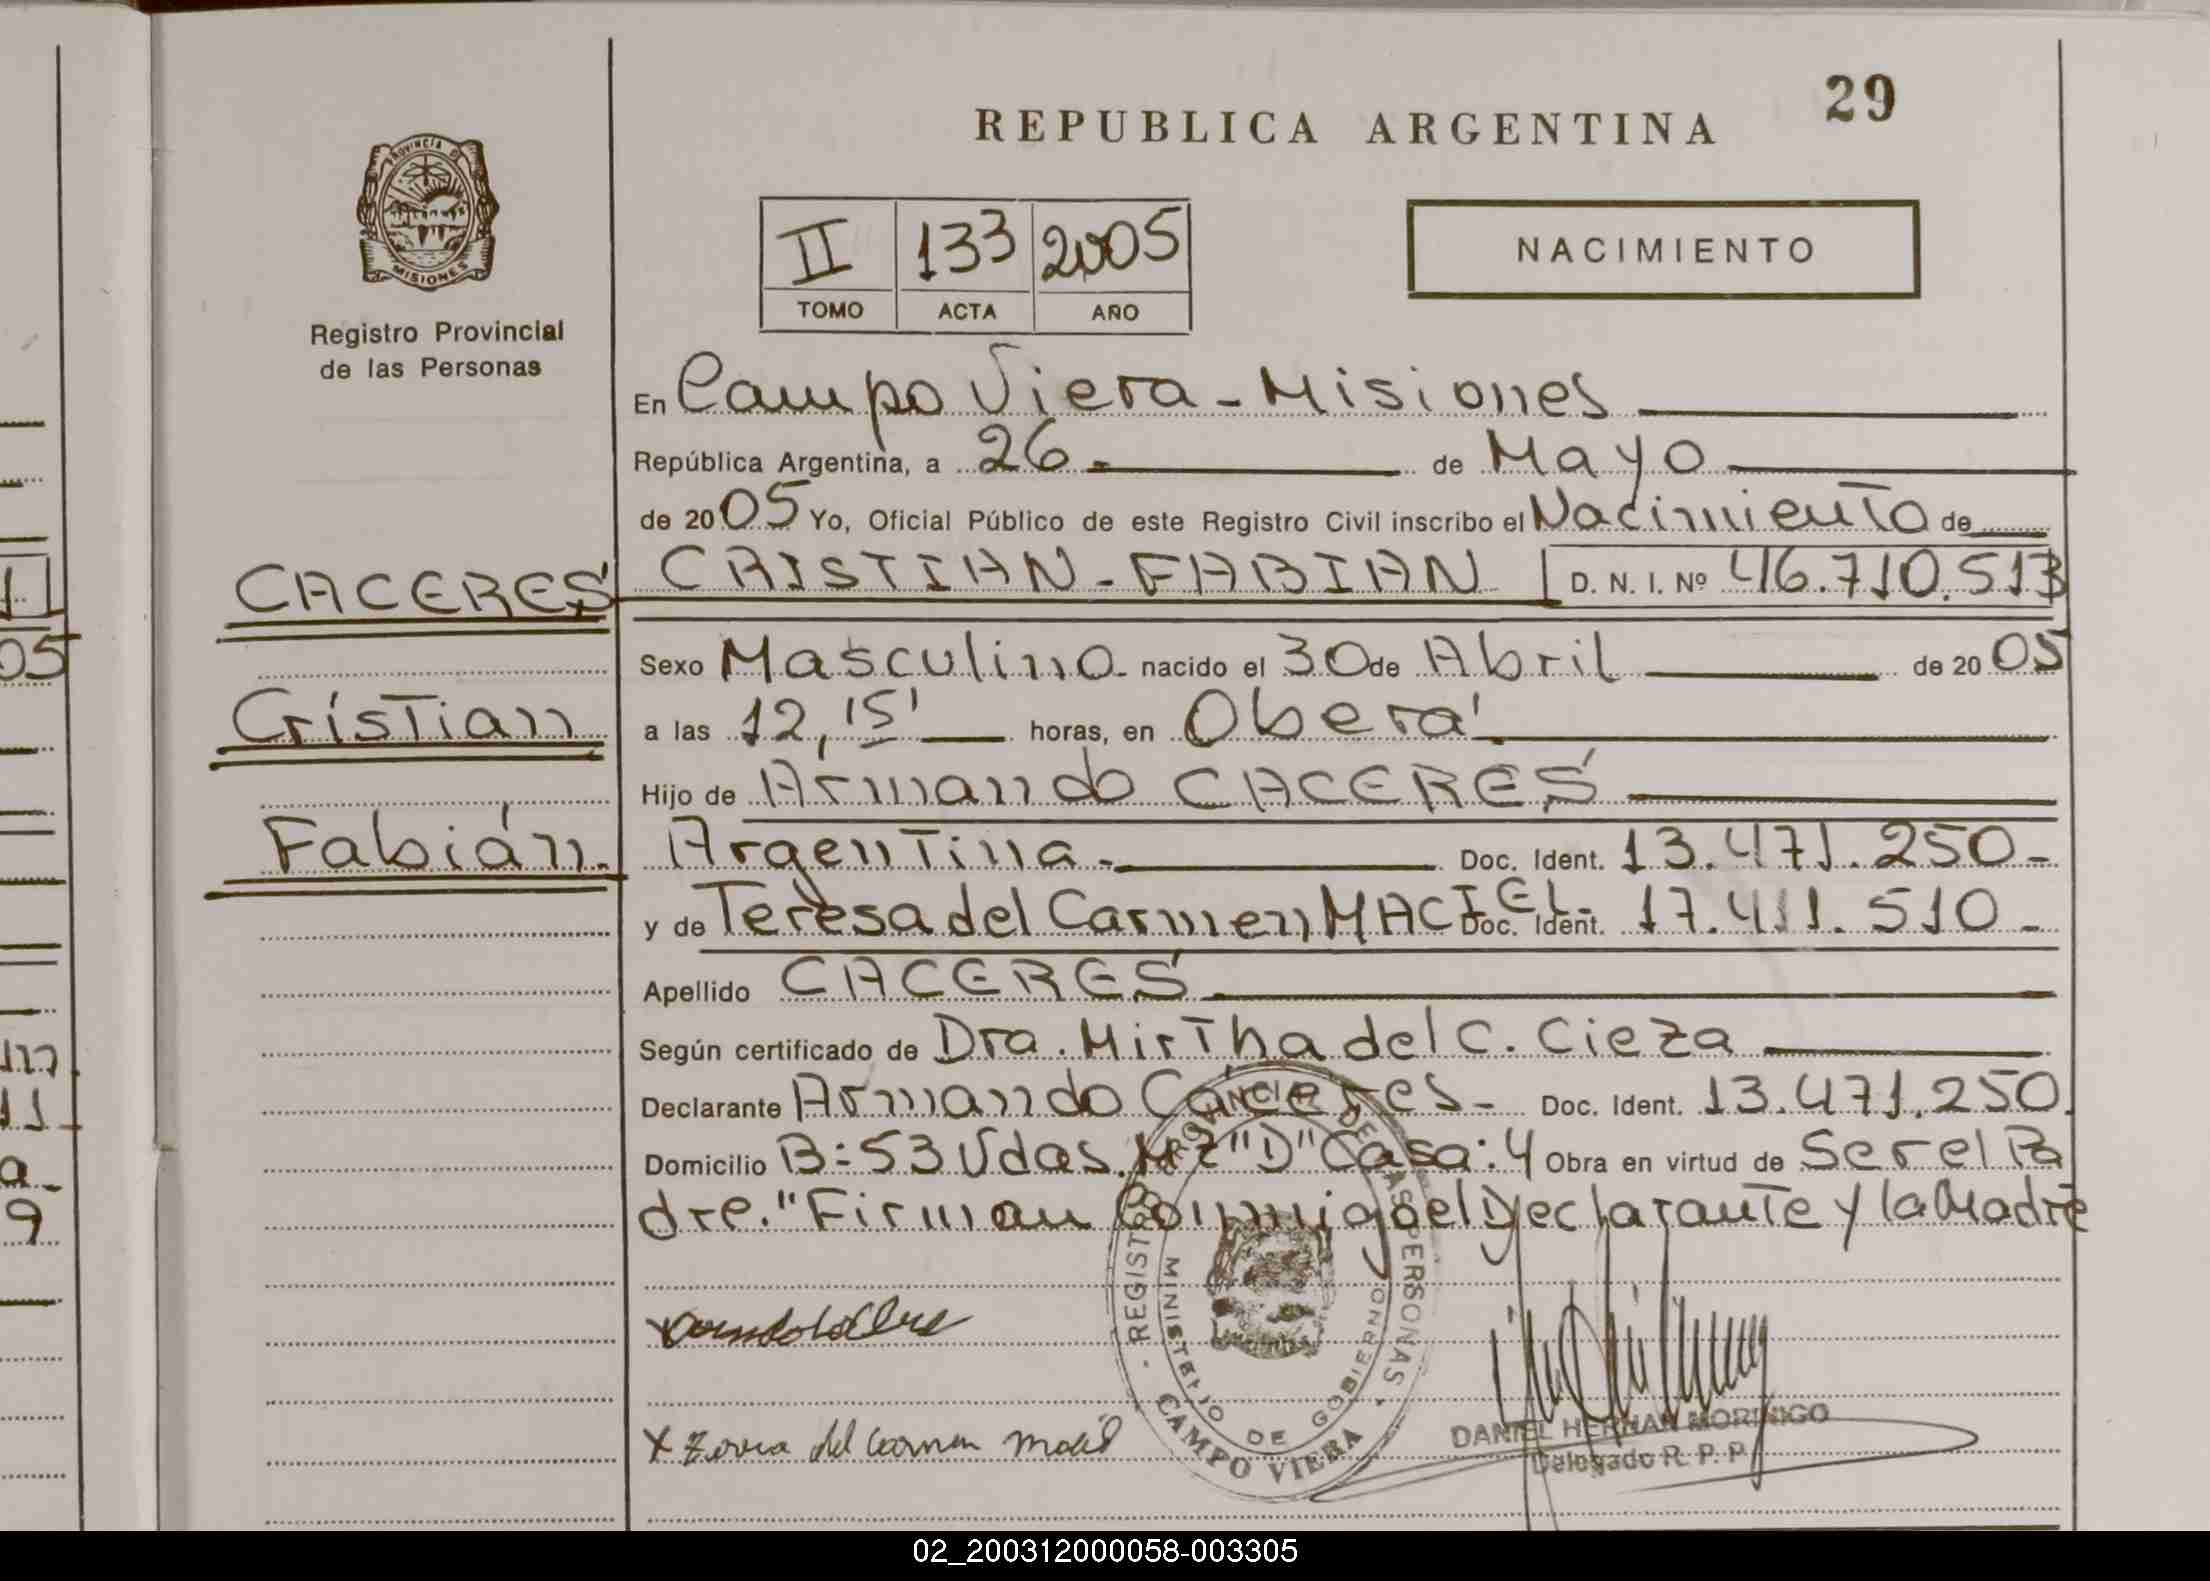 29
REPUBLICA ARGENTINA
PROVINCIA DE
MISIONES
Registro Provincial
de las Personas
II 133 2005
TOMO ACTA AÑO
NACIMIENTO
En Campo Viera - Misiones
República Argentina, a 26 - de Mayo
de 2005 Yo, Oficial Público de este Registro Civil inscribo el Nacimiento de
CACERES CRISTIAN - FABIAN D. N. I. Nº 46.710.513
Sexo Masculino - nacido el 30 de Abril de 2005
Cristian
a las 12,15' horas, en Oberá
Hijo de Armando CACERES
Fabián.
Argentina - Doc. Ident. 13.471.250 -
y de Teresa del Carmen MACIEL - Doc. Ident. 17.411.510 -
Apellido CACERES
Según certificado de Dra. Mirtha del C. Cieza
Declarante Armando Cáceres - Doc. Ident. 13.471.250.
Domicilio B: 53 Vdas. Mz "D" Casa: 4 Obra en virtud de Ser el Pa
dre. "Firman Conmigo el Declarante y la Madre
REGISTRO PROVINCIAL DE LAS PERSONAS
MINISTERIO DE GOBIERNO
CAMPO VIERA
X del Carmen
DANIEL HERNAN MORINIGO
Delegado R. P. P.
02_200312000058-003305